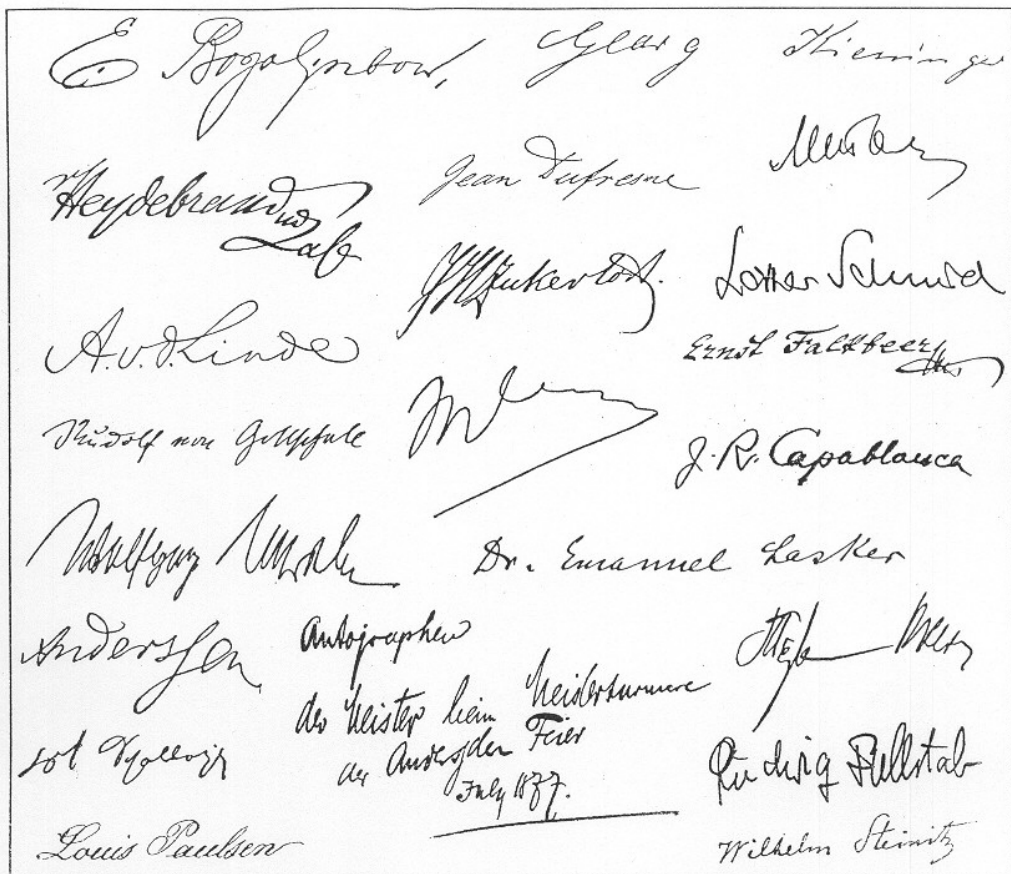 E Bogoljubow,
Georg Kieninger
v Heydebrand und
Lasa
Jean Dufresne
JHZukertort.
Lothar Schmid
A.v.d.Linde
Ernst Falkbeer
Rudolf von Gottschall
J. R. Capablanca
Wolfgang
Dr. Emanuel Lasker
Anderssen
Autographen
der Meister beim Meisterturniere
der Anderssen Feier
July 1877.
Ludwig Rellstab
Louis Paulsen
Wilhelm Steinitz